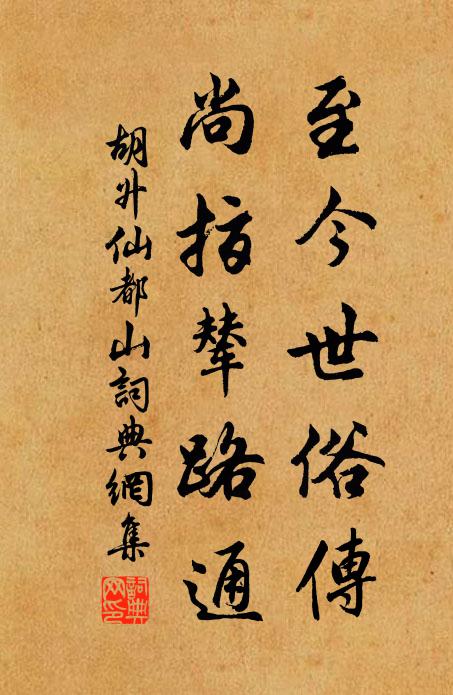 至今世俗傳
尚指輦路通
胡升仙都山詞典網集
詞典網印